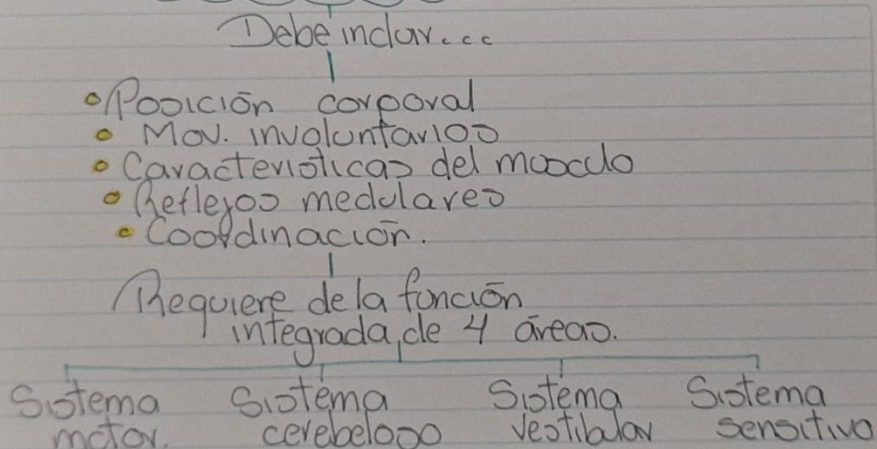 Debe incluir...
• Posición corporal
• Mov. involuntarios
• Características del músculo
• Reflejos medulares
• Coordinación.
Requiere de la función
integrada de 4 áreas.
Sistema Sistema Sistema Sistema
motor. cerebeloso vestibular sensitivo